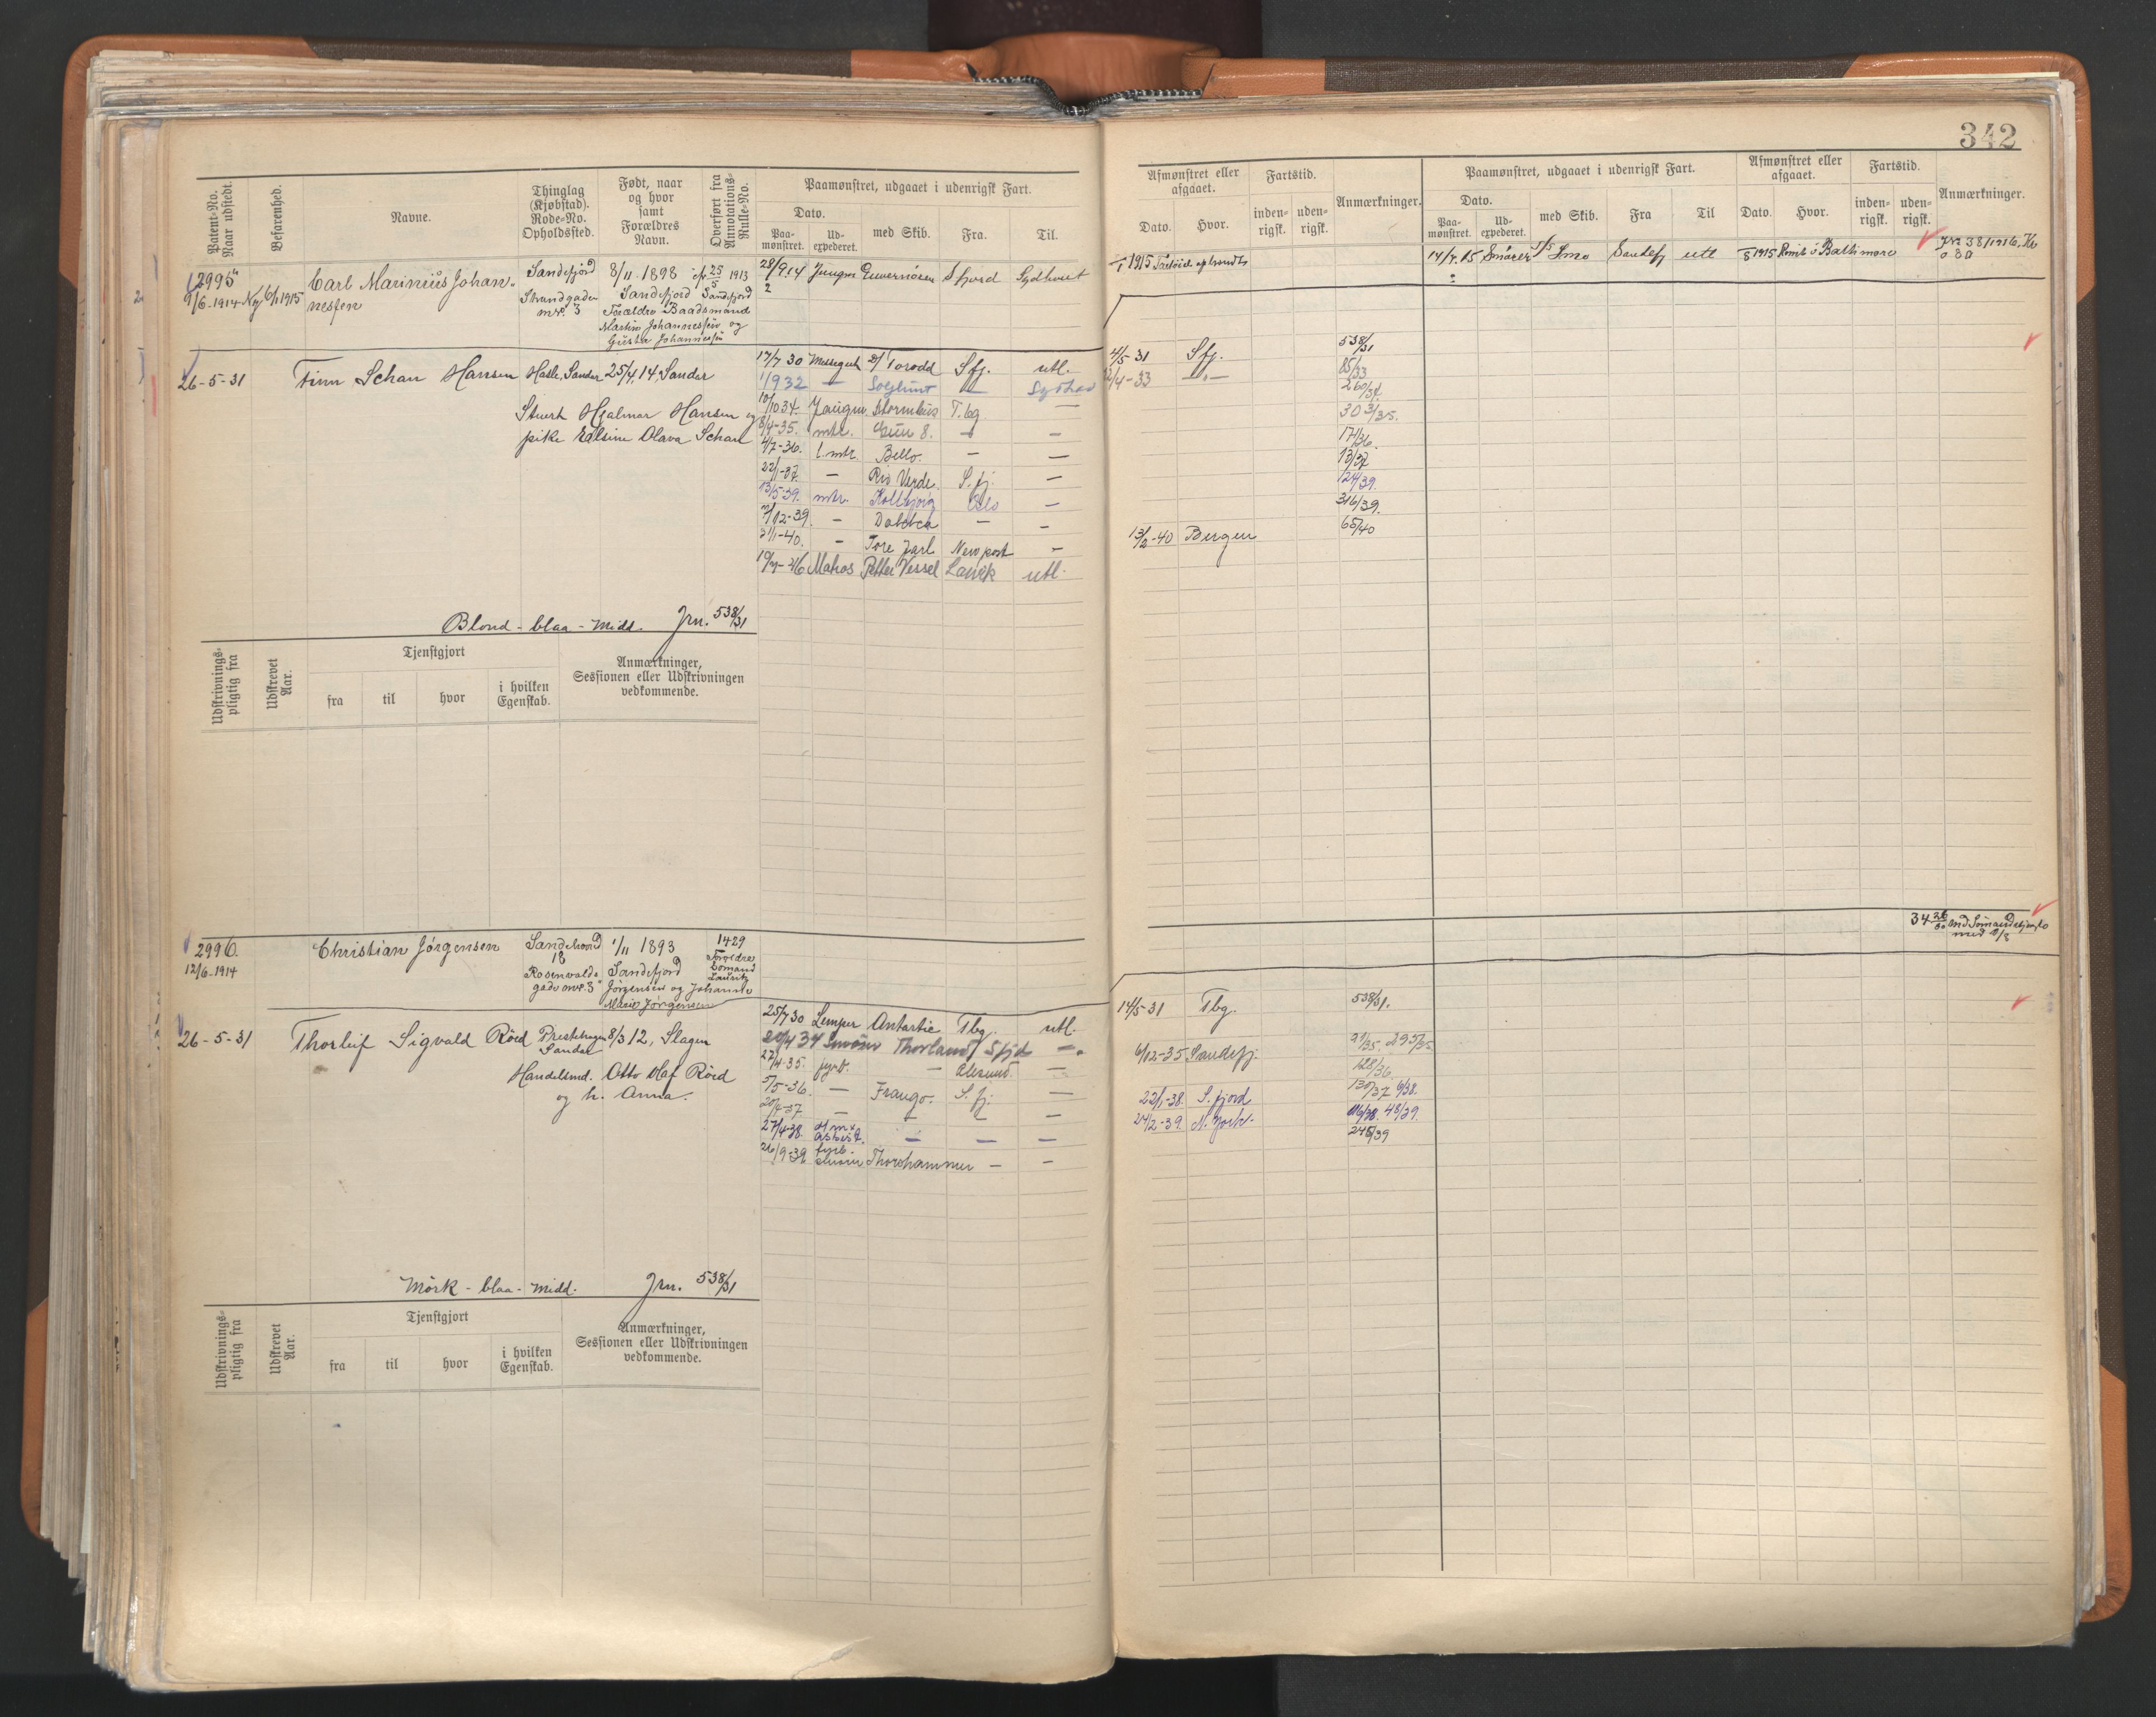 342
Patent-No. Naar udstedt.
Befarenhed.
Navne.
Thinglag (Kjøbstad). Rode-No. Opholdssted.
Født, naar og hvor samt Forældres Navn.
Overført fra Annotations-Rulle-No.
Paamønstret, udgaaet i udenrigsk Fart.
Dato.
Paa-mønstret.
Ud-expederet.
med Skib.
Fra.
Til.
Afmønstret eller afgaaet.
Dato.
Hvor.
Fartstid.
inden-rigsk.
uden-rigsk.
Anmærkninger.
Paamønstret, udgaaet i udenrigsk Fart.
Dato.
Paa-mønstret.
Ud-expederet.
med Skib.
Fra
Til
Afmønstret eller afgaaet.
Dato.
Hvor.
Fartstid.
inden-rigsk.
uden-rigsk.
Anmærkninger.
2995 Carl Marinius Johan- Sandefjord 8/11 1898 25/5 1913 28/9 14 Jungm Guvernøren Sfjord Sydhavet
9/6-1914 Ny 6/1 1915 nessen Strandgaden Sandefjord Sandefjord
nr. 3 Forældre Baadsmand
Martin Johannessen og
1915
14/7 15 Smører S/S Imo Sandefj utl 1915 Rømt i Baltimore
26-5-31 Finn Schau Hansen Hasle, Sandar 25/4,14, Sandar
Stuert Hjalmar Hansen og
pike Elsine Olava Schau
17/7 30 Messegut Torodd Sfj. utl. 4/5-31 Sfj. 538/31
1932 — Solglimt — Sydhav 4-33 —"— 85/33
10/10 34. Jungm. Stormbus T.bg — 260/34
8/4-35. mtr. 8. — — 303/35.
4/7-36. l.mtr. Bello. — — 174/36
22/1-37. — Rio Verde. S.fj. — 13/37
13/5-39. mtr. Kollbjörg Oslo — 124/39.
7/12-39. — — — 316/39.
2/1-40. — Tore Jarl Newport — 13/2-40 Bergen 65/40
Matros Petter Wessel Larvik utl.
Blond - blaa - midd. Jrn. 538/31
Udskrivnings-pligtig fra
Udskrevet Aar.
Tjenstgjort
fra
til
hvor
i hvilken Egenskab.
Anmærkninger, Sessionen eller Udskrivningen vedkommende.
2996. Christian Jørgensen 1/11 1893 1429
12/6-1914 18 Sandefjord Forældre
Rosenvolds Sømand Lauritz
gade nr. 3 Jørgensen og Johanne
Marie Jørgensen
26-5-31 Thorleif Sigvald Röed 8/3 12, Slagen
Sandar
Handelsmd. Otto Olaf Röed
og h. Anna.
25/7 30 Lemper Antarctic Tbg. utl. 14/5-31 Tbg. 538/31.
34 Thorland Sfjd —"
27/4-35. fyrb. — Ålesund. — 6/12-35 Sandefj.
5/5-36. — Frango. S.fj. — 128/36
37. — — — — 22/1-38. S.fjord 130/37
27/4-38. — — — 24/2-39. N.York.
26/9-39 fyrb. Thorshammer — — 245/39
Mörk - blaa - midd. Jrn. 538/31
Udskrivnings-pligtig fra
Udskrevet Aar.
Tjenstgjort
fra
til
hvor
i hvilken Egenskab.
Anmærkninger, Sessionen eller Udskrivningen vedkommende.